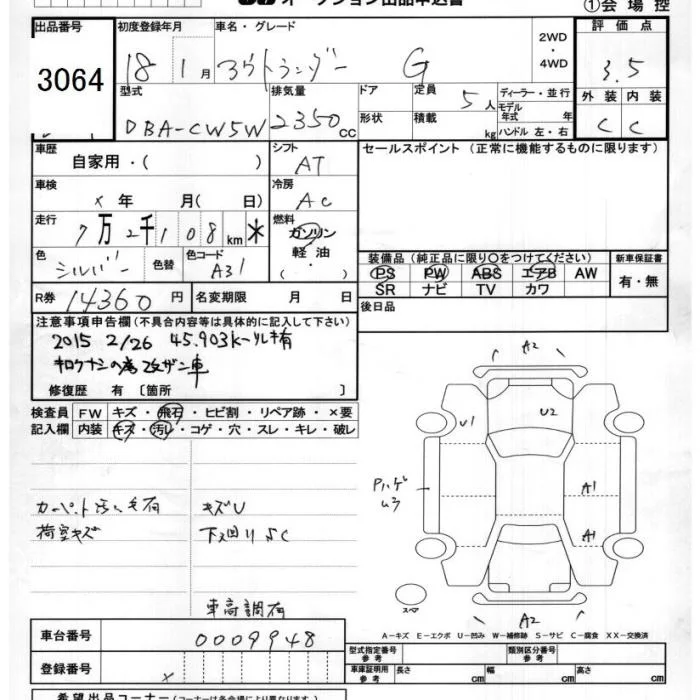 オークション出品申込書
①会場控
出品番号 3064
初度登録年月 18 1月
車名・グレード アウトランダー G
2WD・4WD
評価点 3.5
外装 C 内装 C
型式 DBA-CW5W
排気量 2350 CC
ドア 形状
定員 5人
積載 kg
ディーラー・並行
モデル年式 年
ハンドル 左・右
車歴 自家用・( )
シフト AT
セールスポイント (正常に機能するものに限ります)
車検 × 年 月( 日)
冷房 AC
走行 7万2千108km *
燃料 ガソリン 軽油・
色 シルバー
色替
色コード A31
装備品(純正品に限り〇をつけてください)
新車保証書
PS PW ABS エアB AW
有・無
SR ナビ TV カワ
R券 14360円
名変期限 月 日
後日品
注意事項申告欄(不具合内容等は具体的に記入して下さい)
2015 2/26 45.903k
キロクナシの為改ザン車
修復歴 有 〔箇所 〕
検査員記入欄
FW キズ・飛石・ヒビ割・リペア跡・×要
内装 キズ・汚レ・コゲ・穴・スレ・キレ・破レ
カーペット汚レ毛有
荷室キズ
キズU
下回りSC
車高調有
A2
U1
U2
Pハゲ
A1
A1
スペア
A2
A-キズ E-エクボ U-凹み W-補修跡 S-サビ C-腐食 XX-交換済
車台番号 0009948
型式指定番号 参考
類別区分番号 参考
登録番号 ×
車庫証明用 参考
長さ cm 幅 cm 高さ cm
希望出品コーナー(コーナーは各会場により異なります)